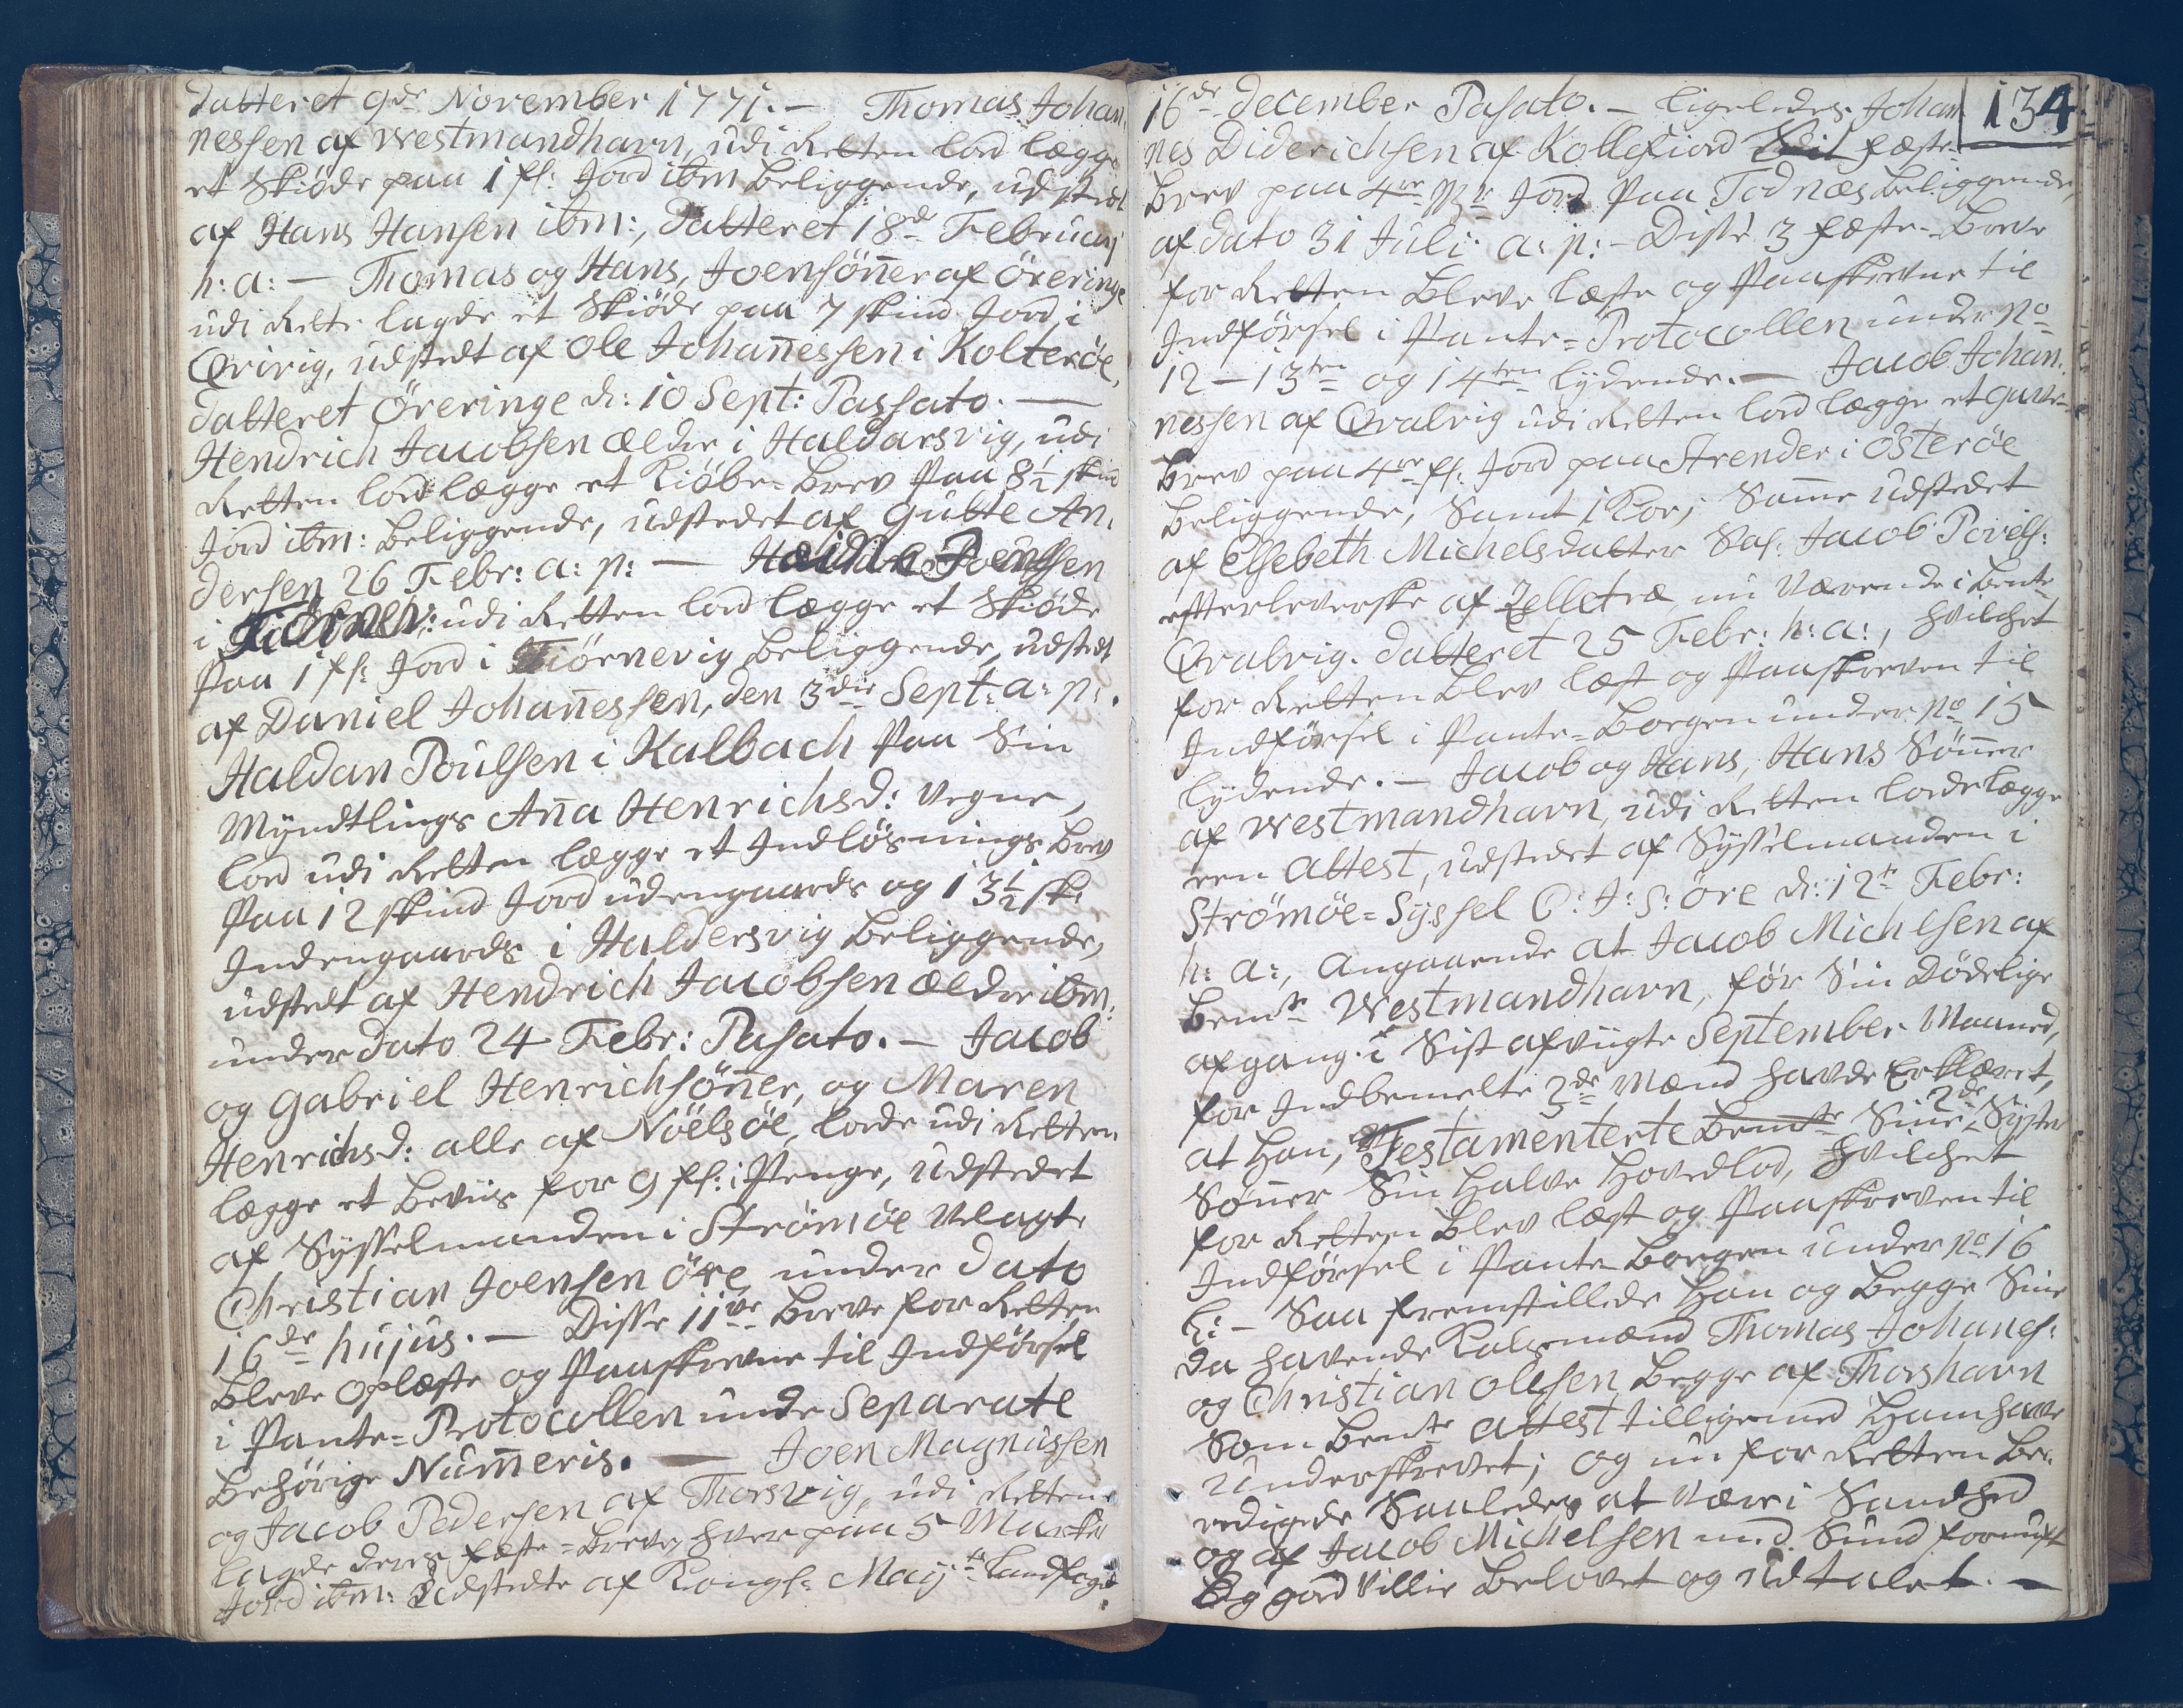 datteret 9de November 1771. — Thomas Johan
nessen af Westmandhavn, udi Retten lod lægge
et Skiøde paa 1 fl: Jord ibm beliggende, udstedt
af Hans Hansen ibm:, datteret 18de Februarj
h: a: — Thomas og Hans, Joensønner af Øreringe
udi Rette lagde et Skiøde paa 7 skind Jord i
Qvivig, udstedt af Ole Johannessen i Kolterøe,
datteret Øreringe d: 10 Sept: Passato. —
Hendrich Jacobsen ældre i Haldarsvig, udi
Retten lod lægge et Kiøbe-Brev paa 8½ skind
Jord ibm: beliggende, udstedet af Gutte An,
dersen 26 Febr: a: p: — Joensen
i udi Retten lod lægge et Skiøde
paa 1 fl: Jord i Tiørnevig beliggende, udstedt
af Daniel Johannessen, den 3die Sept: a: p:.
Haldan Poulsen i Kalbach paa Sin
Myndtlings Anna Henrichsd: Vegne,
lod udi Retten lægge et Indløsnings Brev
paa 12 skind Jord udengaards og 13½ sk:
Indengaards i Haldersvig beliggende,
udstedt af Hendrich Jacobsen ældre ibm:
under dato 24 Febr: Pasato. — Jacob
og Gabriel Henrichsønner, og Maren
Henrichsd: alle af Nöelsöe, lode udi Retten
lægge et Beviis for 9 fl: i Penge, udstedet
af Sysselmanden i Strömöe Velagte
Christian Joensen öre under Dato
16de hujus. — Disse 11ve Breve for Retten
bleve oplæste og Paaskrevne til Indførsel
i Pante=Protocollen unde Separate
Behörige Numeris. — Joen Magnussen
og Jacob Pedersen af Thorsvig, udi Retten
lagde deres fæste=Breve, hver paa 5 Marker
Jord ibm: Udstedte af Kongl: Mayts: Landfoged
16de december Pasato. — ligeledes Johan 134
nes Diderichsen af Kollefiord fæste-
Brev paa 4re Mk Jord Paa Todnæs beliggende,
af dato 31 Juli a: p: — Disse 3 fæste-Breve
for Retten bleve læste og Paaskrevne til
Indførsel i Pante=Protocollen under No
12 — 13ten og 14ten lydende. — Jacob Johan
nessen af Qvalvig udi Retten lod lægge et gave-
Brev paa 4re fl: Jord paa Strender i Österöe
beliggende, Samt 1 Koe; Samme udstedet
af Elsebeth Michelsdatter Sal: Jacob Povels:
efterleverske af Zelletræ nu værende i bemte
Qvalvig. datteret 25 Febr: h: a:, hvilchet
for Retten blev læst og Paaskreven til
Indførsel i Pante=Bogen under No 15
lydende. — Jacob og Hans, Hans Sönner
af Westmandhavn, udi Retten lode lægge
een attest, udstedet af Sysselmanden i
Strömöe=Syssel C: J: S: öre d: 12te Febr:
h: a:, angaaende at Jacob Michelsen af
bemte Westmandhavn, før Sin Dödelige
afgang i Sist afvigte September Maaned,
for Indbemelte 2de Mænd havde Erklæret,
at han, Testamenterte bemte Sine 2de Syster
Sönner Sin halve hovedlod, hvilchet
for Retten blev læst og Paaskreven til
Indførsel i Pante Bogen under No 16
l: — Saa fremstillede han og begge Sine
da havende Kalsmænd Thomas Johanes:
og Christian Olesen begge af Thorshavn
Som bemte attest tilligemed ham havde
Underskrevet; og nu for Retten be-
edigede Saaledes at være i Sandhed
og af Jacob Michelsen med Sund fornuft
Og god Villie belovet og Udtalet. —